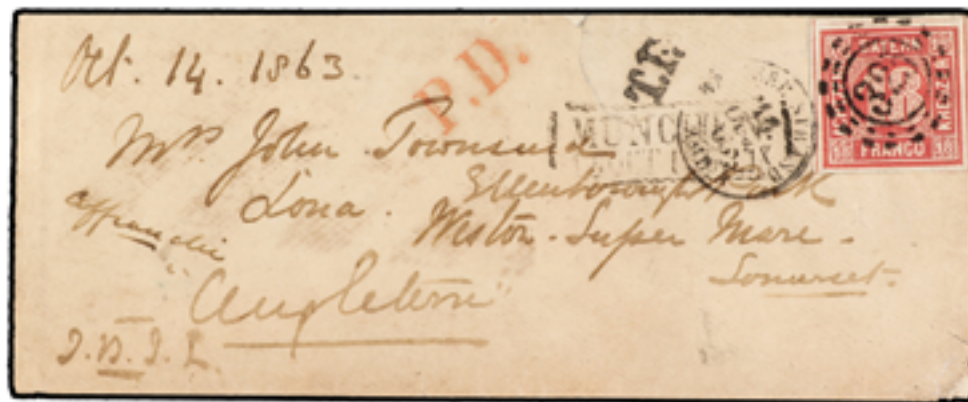 Oct. 14. 1863.
P.D.
T.F.
BAYERN
18
FRANCO
18
Mrs John Townsend
Iona. Ellenborough Park
Weston-Super Mare.
Somerset.
affranchie
"Angleterre"